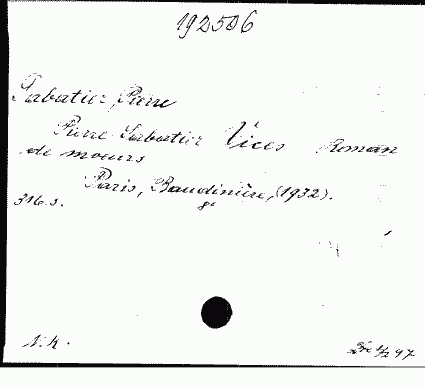 192506
Sabatier, Pierre
Pierre Sabatier Vices Roman
de moeurs
Paris, Baudinière, (1932).
8°
316 s.
N.K.